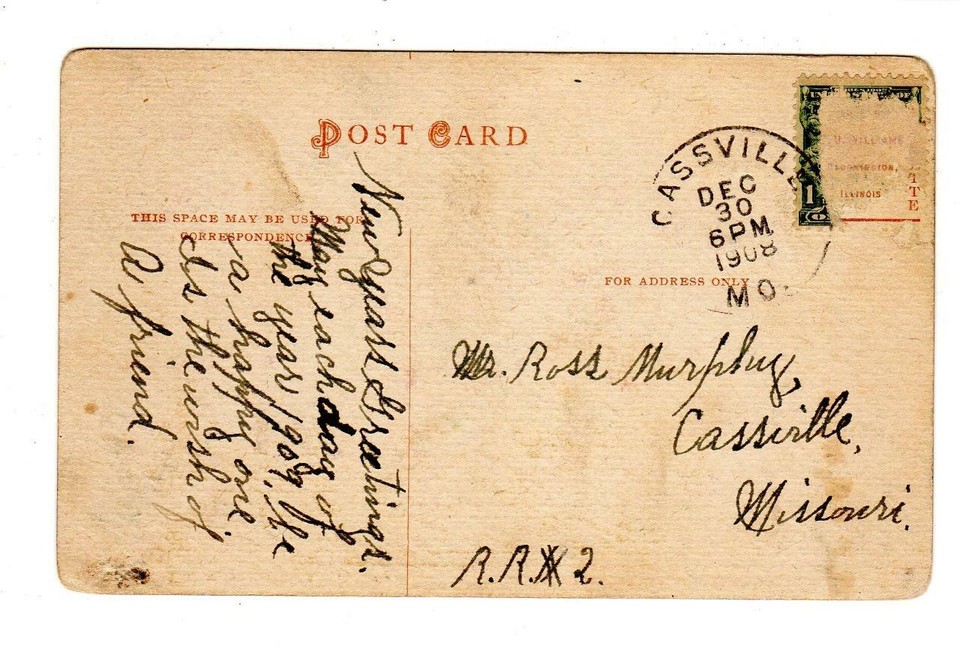 POST CARD
THIS SPACE MAY BE USED FOR
CORRESPONDENCE
New years Greetings.
May each day of
the year 1909, be
a happy one
is the wish of
A friend.
CASSVILLE
DEC
30
6 PM
1908
MO.
1
WILLIAMS
BLOOMINGTON,
ILLINOIS
TTE
FOR ADDRESS ONLY
Mr. Ross Murphy,
Cassville,
Missouri.
R.R. # 2.